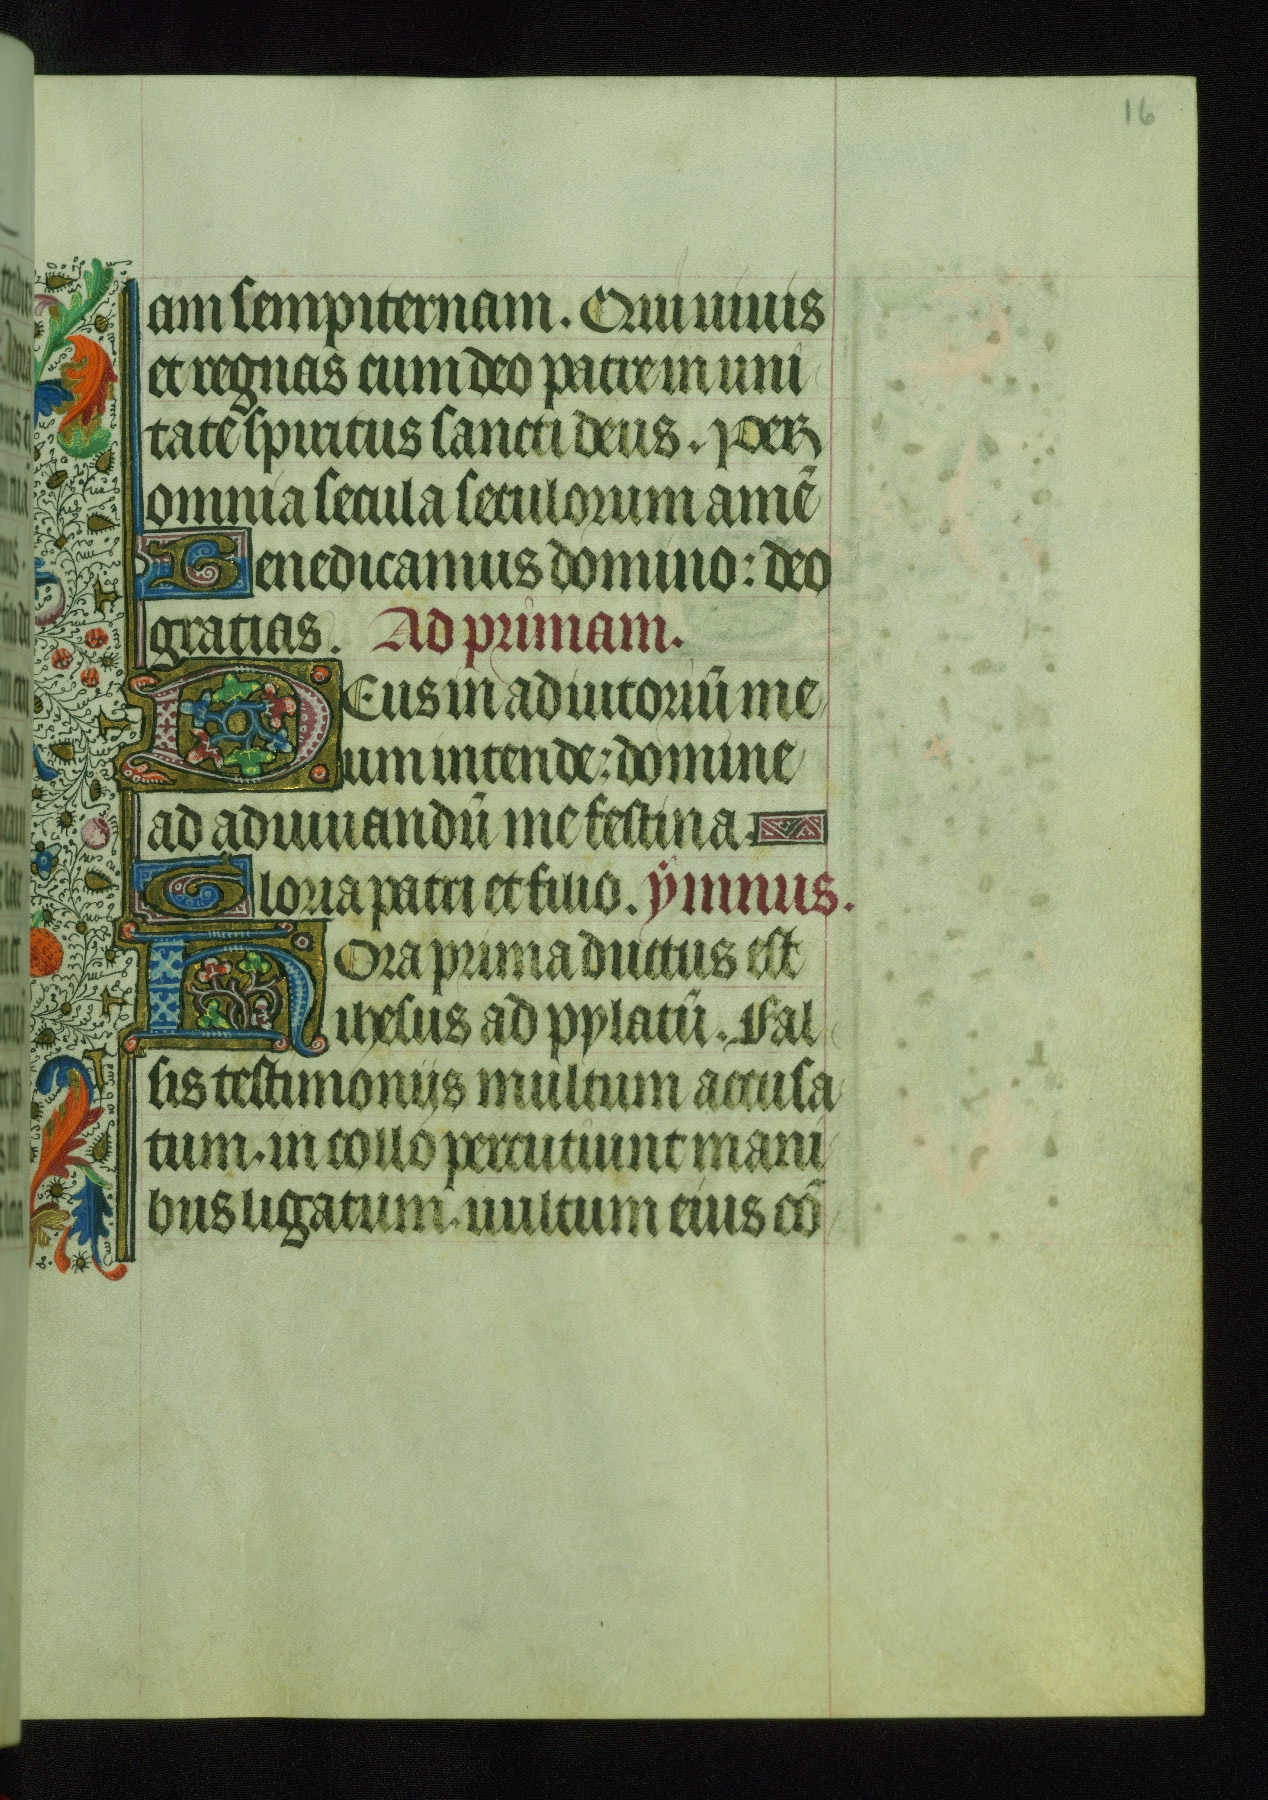 16
am sempiternam. Qui uiuis
et regnas cum deo patre in uni
tate spiritus sancti deus. Per
omnia secula seculorum amē
Benedicamus domino: deo
gratias. Ad primam.
DEus in adiutoriū me
um intende: domine
ad adiuuandū me festina.
Gloria patri et filio. ymnus.
HOra prima ductus est
ihesus ad pylatū. Fal
sis testimoniis multum accusa
tum. in collo percutiunt mani
bus ligatum. uultum eius cō